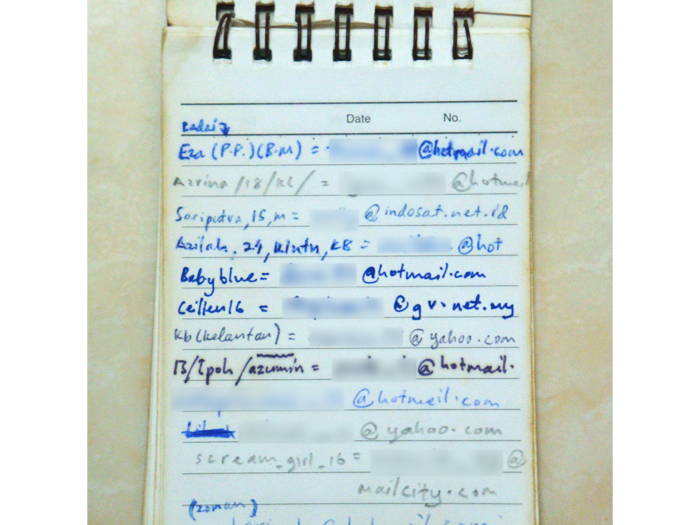 Date No.
Eza (P.P.)(B.M) = @hotmail.com
Azrina /18/KL/ = @hotmail
Saripotra, 15, m = @indosat.net.id
Azilah, 24, KB = @hot
Babyblue = @hotmail.com
Ceillen16 = @gv.net.my
Kb (Kelantan) = @yahoo.com
13/Ipoh/azumin = @hotmail.
@hotmail.com
@yahoo.com
scream_girl_16 = @
mailcity.com
(zoman)